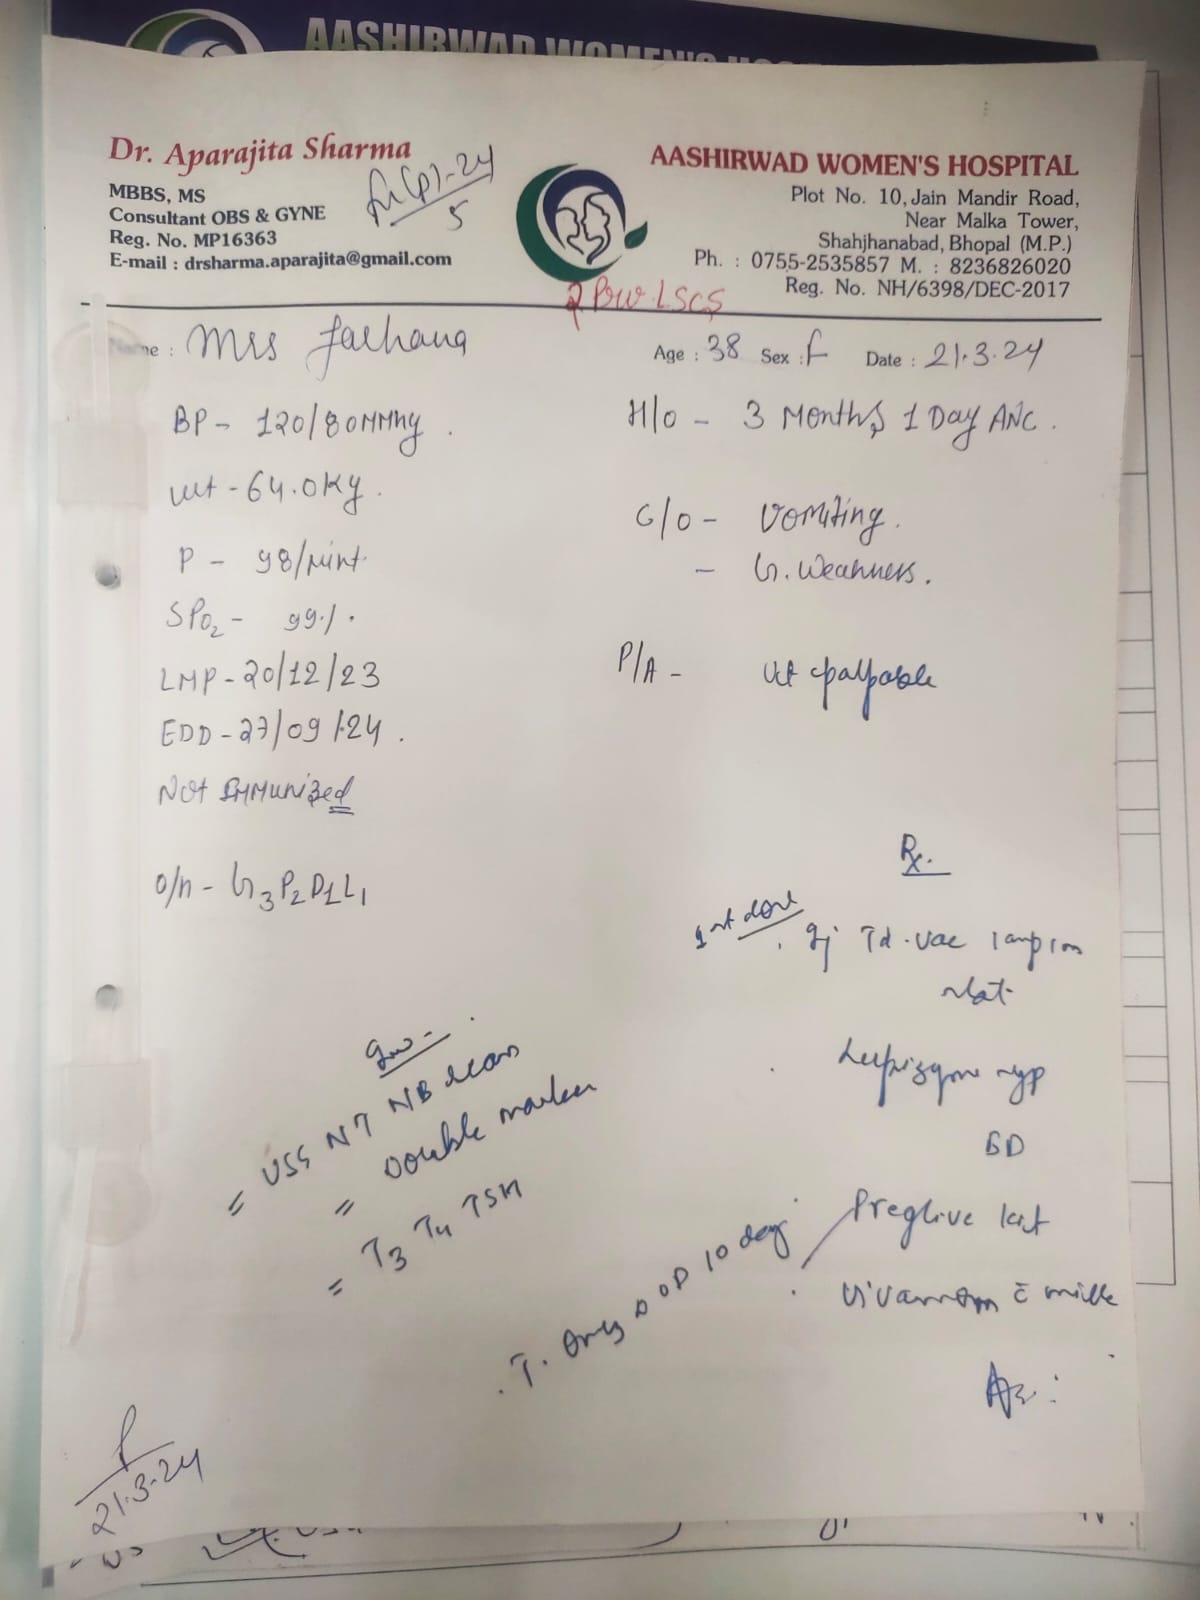 AASHIRWAD WOMEN'S
Dr. Aparajita Sharma
MBBS, MS
Consultant OBS & GYNE
Reg. No. MP16363
E-mail : drsharma.aparajita@gmail.com
AASHIRWAD WOMEN'S HOSPITAL
Plot No. 10, Jain Mandir Road,
Near Malka Tower,
Shahjhanabad, Bhopal (M.P.)
Ph. : 0755-2535857 M. : 8236826020
Reg. No. NH/6398/DEC-2017
LSCS
Name : Mrs Farhana
Age : 38 Sex : F Date : 21.3.24
BP - 120/80MMhg
wt - 64.0Kg.
P - 98/mint
SPO2 - 99%.
LMP - 20/12/23
EDD - 27/09/24.
Not IMMunized
O/H - G3P2D1L1
H/O - 3 Months 1 Day ANC.
C/O - Vomiting.
- G. Weakness.
P/A - palpable
Rx.
1st dose
Inj Td-vac
stat
BD
Preglive kit
c milk
T. D OD 10 day
Inv-
= USG NT NB scan
= Double marker
= T3 T4 TSH
21.3.24